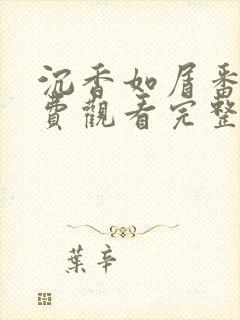 沉香如屑番
費觀看完整
葉辛